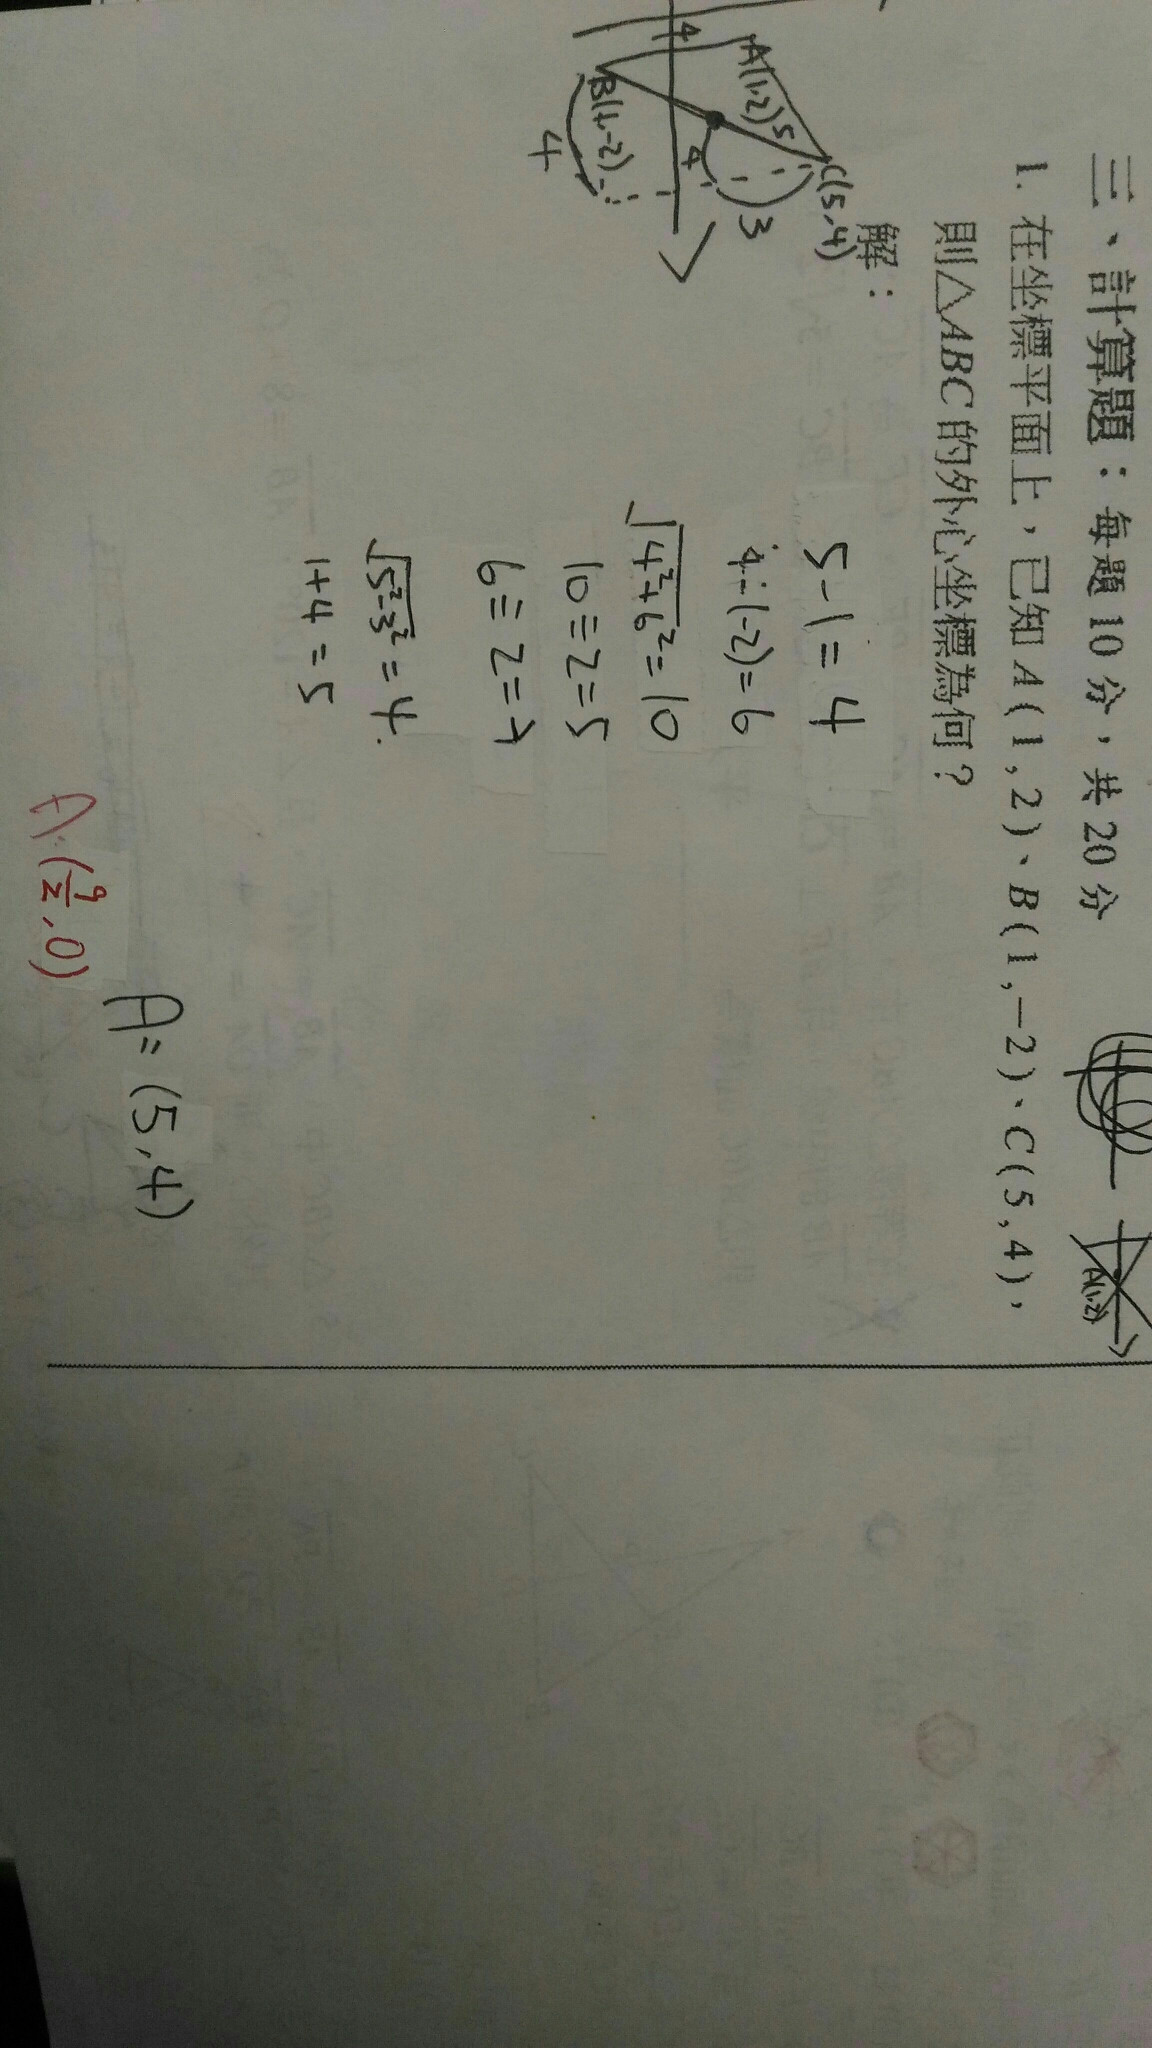 三、計算題：每題10分，共20分
1. 在坐標平面上，已知A(1,2)、B(1,−2)、C(5,4)，
則△ABC的外心坐標為何？
解：
A(1,2)
C(5,4)
5
4
4
3
4
A(1,2)
5-1=4
4-(-2)=6
√4²+6²=10
10÷2=5
6÷2=
√5²-3²=4
1+4=5
A=(5,4)
A:(9/2,0)